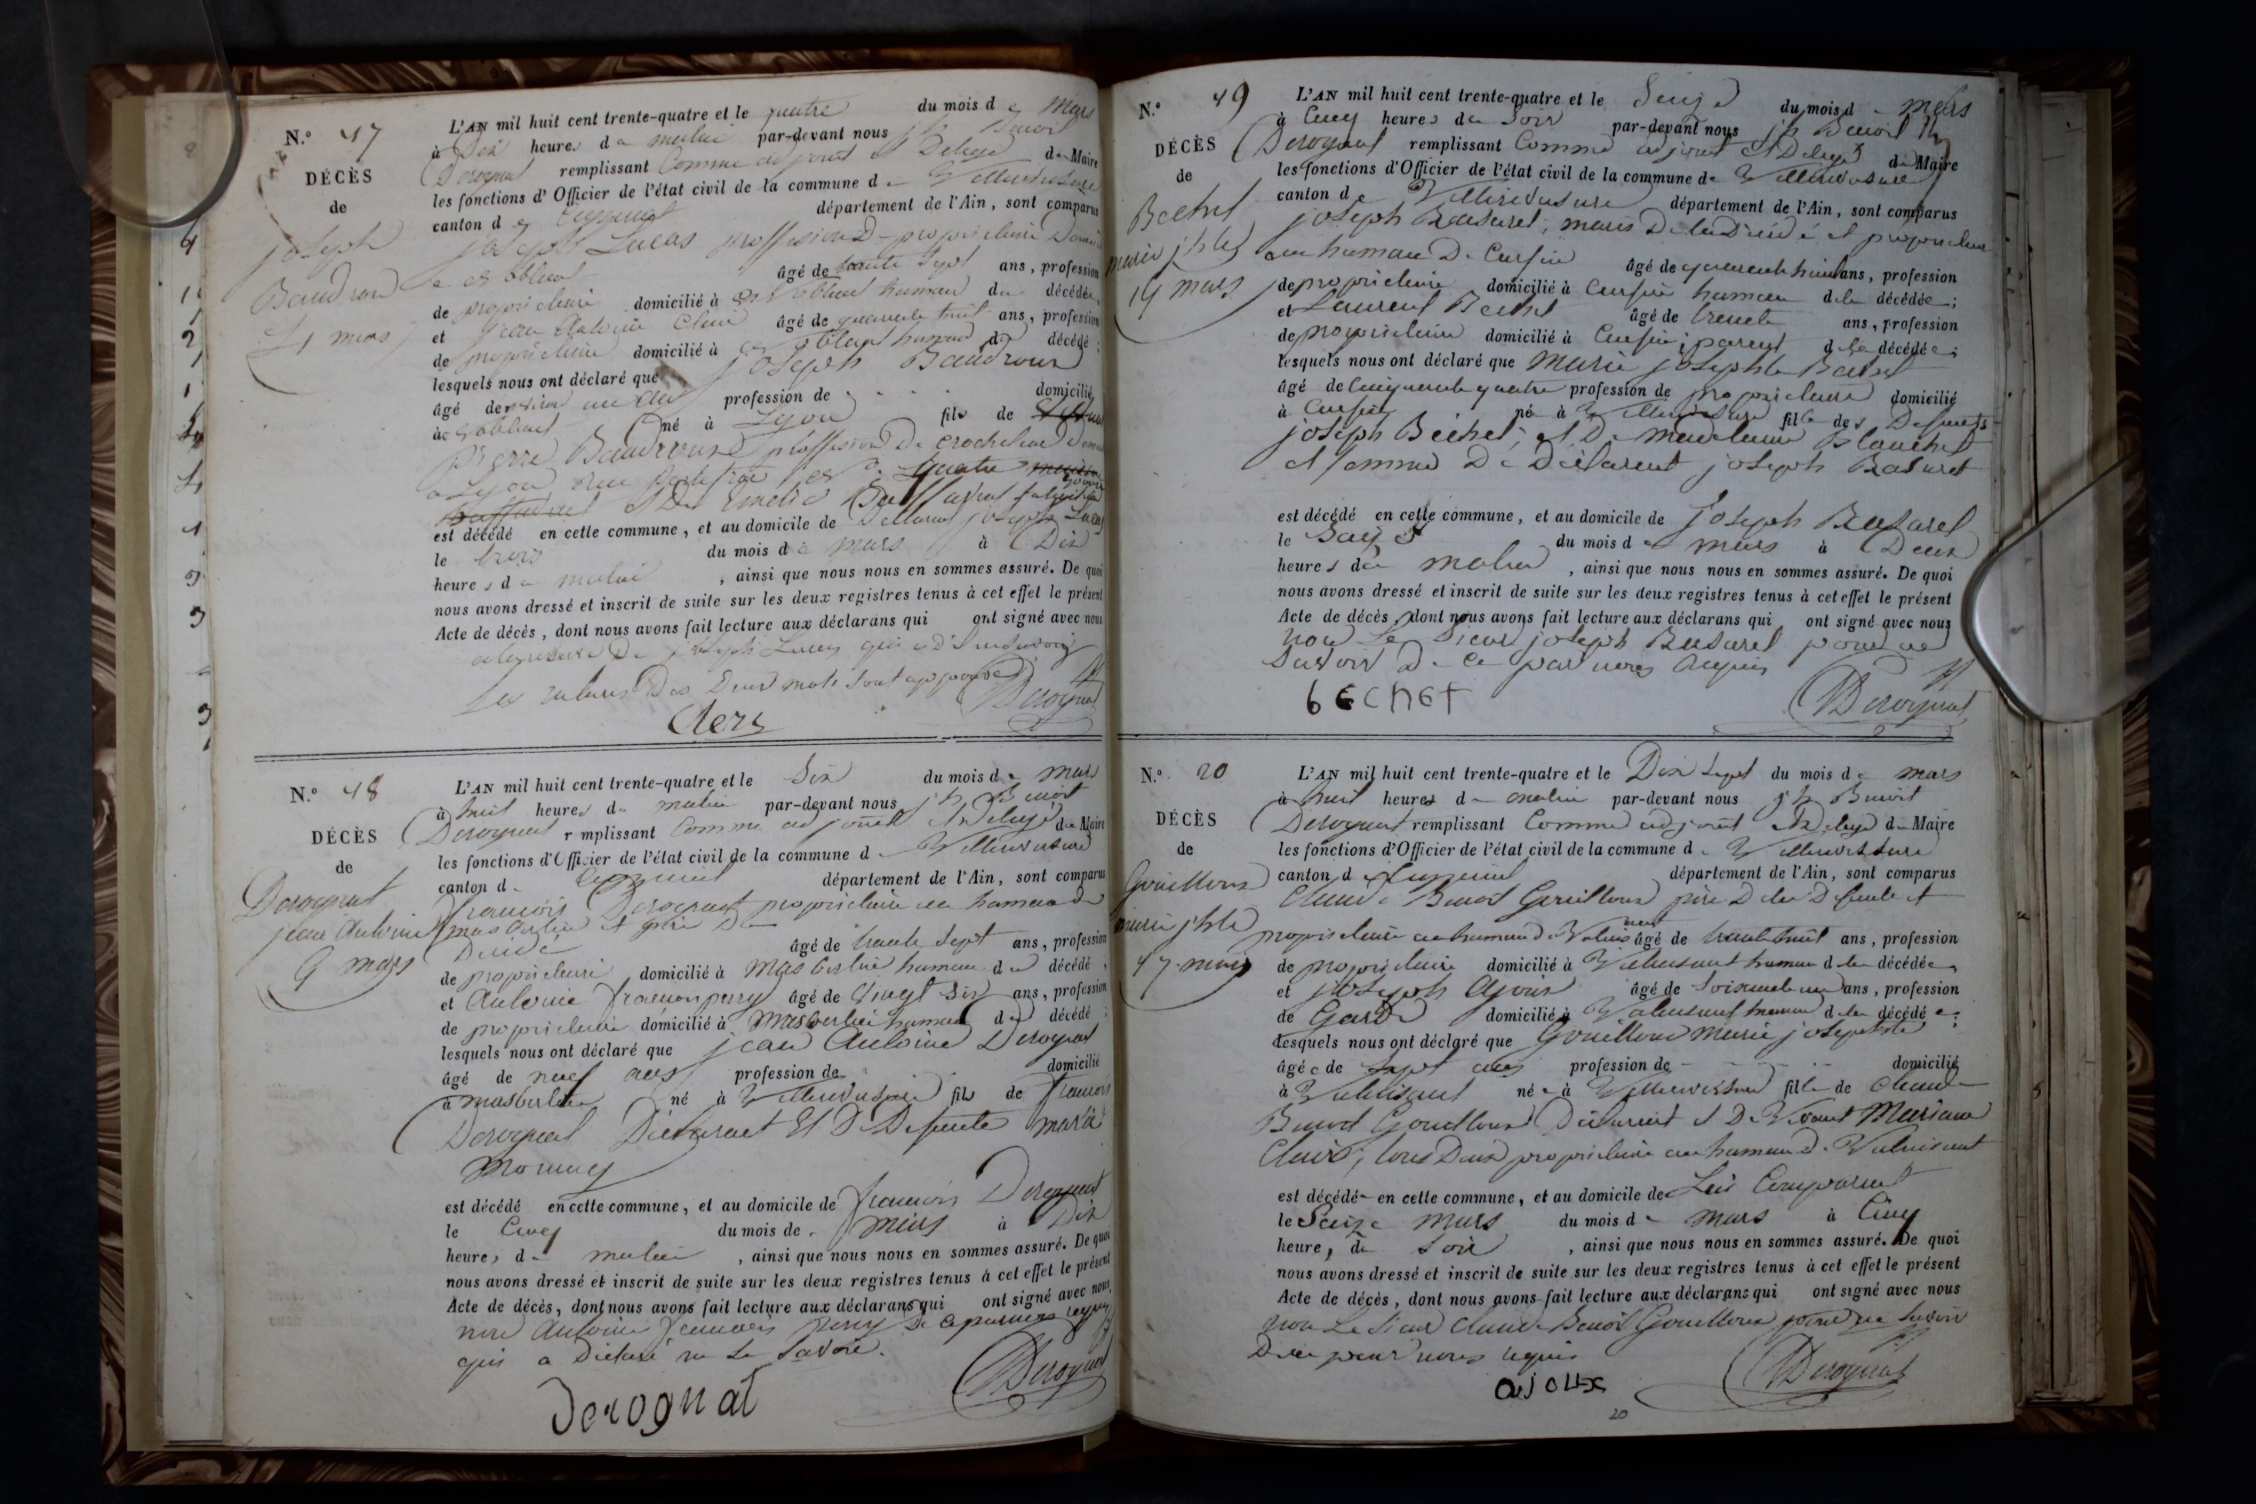 N.º 17
DÉCÈS
de
joseph
Baudrond
4 mars
L'AN mil huit cent trente-quatre et le quatre du mois de Mars
à Dix heures du matin par-devant nous jh Benoit
Derognat remplissant Comme adjoint et Delegué du Maire
les fonctions d'Officier de l'état civil de la commune de Villereversure
canton de Ceyzeriat département de l'Ain, sont comparus
joseph Lucas proffession D propriétaire
âgé de trente sept ans, profession
de propriétaire domicilié à hameau du décédé,
et jean Antoine Clerc âgé de quarente huit ans, profession
de propriétaire domicilié à hameau du décédé;
lesquels nous ont déclaré que joseph Baudrond
âgé de un an profession de domicilié
à né à Lyon fils de
pierre Baudrond proffession De crocheteur
a Lyon rue
est décédé en cette commune, et au domicile de Declarant joseph Lucas
le trois du mois de mars à Dix
heures du matin, ainsi que nous nous en sommes assuré. De quoi
nous avons dressé et inscrit de suite sur les deux registres tenus à cet effet le présent
Acte de décès, dont nous avons fait lecture aux déclarans qui ont signé avec nous
De joseph Lucas qui a dit
Les ratures Des Deux mots sont approuvé
Derognat
Clerc
N.º 18
DÉCÈS
de
Derognat
jean Antoine
6 mars
L'AN mil huit cent trente-quatre et le Six du mois de mars
à huit heures du matin par-devant nous jh Benoit
Derognat remplissant Comme adjoint et Delegué du Maire
les fonctions d'Officier de l'état civil de la commune de Villereversure
canton de Ceyzeriat département de l'Ain, sont comparus
francois Derognat propriétaire au hameau de
et père Du
Décédé âgé de trente sept ans, profession
de propriétaire domicilié à hameau du décédé,
et Antoine francon perry âgé de vingt Six ans, profession
de propriétaire domicilié à hameau du décédé;
lesquels nous ont déclaré que jean Antoine Derognat
âgé de neuf ans profession de domicilié
à né à Villereversure fils de francois
Derognat Déclarant Et De Defunte maria
Mornay
est décédé en cette commune, et au domicile de francois Derognat
le Cinq du mois de mars à Dix
heures du matin, ainsi que nous nous en sommes assuré. De quoi
nous avons dressé et inscrit de suite sur les deux registres tenus à cet effet le présent
Acte de décès, dont nous avons fait lecture aux déclarans qui ont signé avec nous,
non Antoine francois perry De ce par nous requis
qui a Déclaré ne Le Savoir.
Derognat
Derognat
N.º 19
DÉCÈS
de
Bechet
marie jhte
16 mars
L'AN mil huit cent trente-quatre et le Seize du mois de Mars
à Cinq heures du Soir par-devant nous jh Benoit
Derognat remplissant Comme adjoint et Delegué du Maire
les fonctions d'Officier de l'état civil de la commune de Villereversure
canton de Villereversure département de l'Ain, sont comparus
joseph Basaret, maris De la Décédé et propriétaire
au hameau De Curfin âgé de quarente huit ans, profession
de propriétaire domicilié à Curfin hameau de la décédée;
et Laurent Bechet âgé de trente ans, profession
de propriétaire domicilié à Curfin; parent de la décédée;
lesquels nous ont déclaré que Marie josephte Bechet
âgé de cinquante quatre profession de propriétaire domicilié
à Curfin né à Villereversure fille des Defunts
joseph Bechet; et De Madelaine Blanchet
et femme De Déclarent joseph Basaret
est décédé en cette commune, et au domicile de joseph Basaret
le Saize du mois de mars à Deux
heures du matin, ainsi que nous nous en sommes assuré. De quoi
nous avons dressé et inscrit de suite sur les deux registres tenus à cet effet le présent
Acte de décès, dont nous avons fait lecture aux déclarans qui ont signé avec nous
non le Sieur joseph Basaret pour ne
Savoir De ce par nous requis
bechet
Derognat
N.º 20
DÉCÈS
de
Gouilloux
marie jhte
17 mars
L'AN mil huit cent trente-quatre et le Dix Sept du mois de mars
à huit heures du matin par-devant nous jh Benoit
Derognat remplissant Comme adjoint et Delegué du Maire
les fonctions d'Officier de l'état civil de la commune de Villereversure
canton de Ceyzeriat département de l'Ain, sont comparus
Claude Benoit Gouilloux père De la Defunte et
propriétaire au hameau de âgé de trente huit ans, profession
de propriétaire domicilié à hameau de la décédée,
et joseph Ajoux âgé de Soixante un ans, profession
de Garde domicilié à hameau de la décédée;
lesquels nous ont déclaré que Gouilloux Marie josephte
âgée de sept ans profession de domicilié
à née à Villereversure fille de Claude
Benoit Gouilloux Déclarent et De Vivant Mariane
Clerc; tous Deux propriétaire au hameau de
est décédé en cette commune, et au domicile de Comparant
le Seize mars du mois de mars à Cinq
heures du Soir, ainsi que nous nous en sommes assuré. De quoi
nous avons dressé et inscrit de suite sur les deux registres tenus à cet effet le présent
Acte de décès, dont nous avons fait lecture aux déclarans qui ont signé avec nous
non Le Sieur Claude Benoit Gouilloux pour ne Savoir
De ce par nous requis
Derognat
ajoux
20